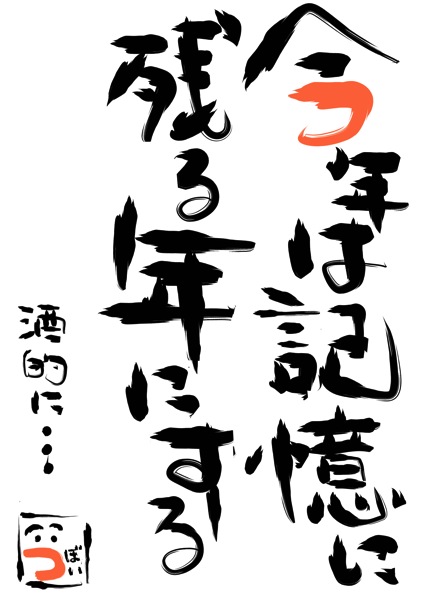 今年は記憶に
残る年にする
酒的に・・・
つぼい